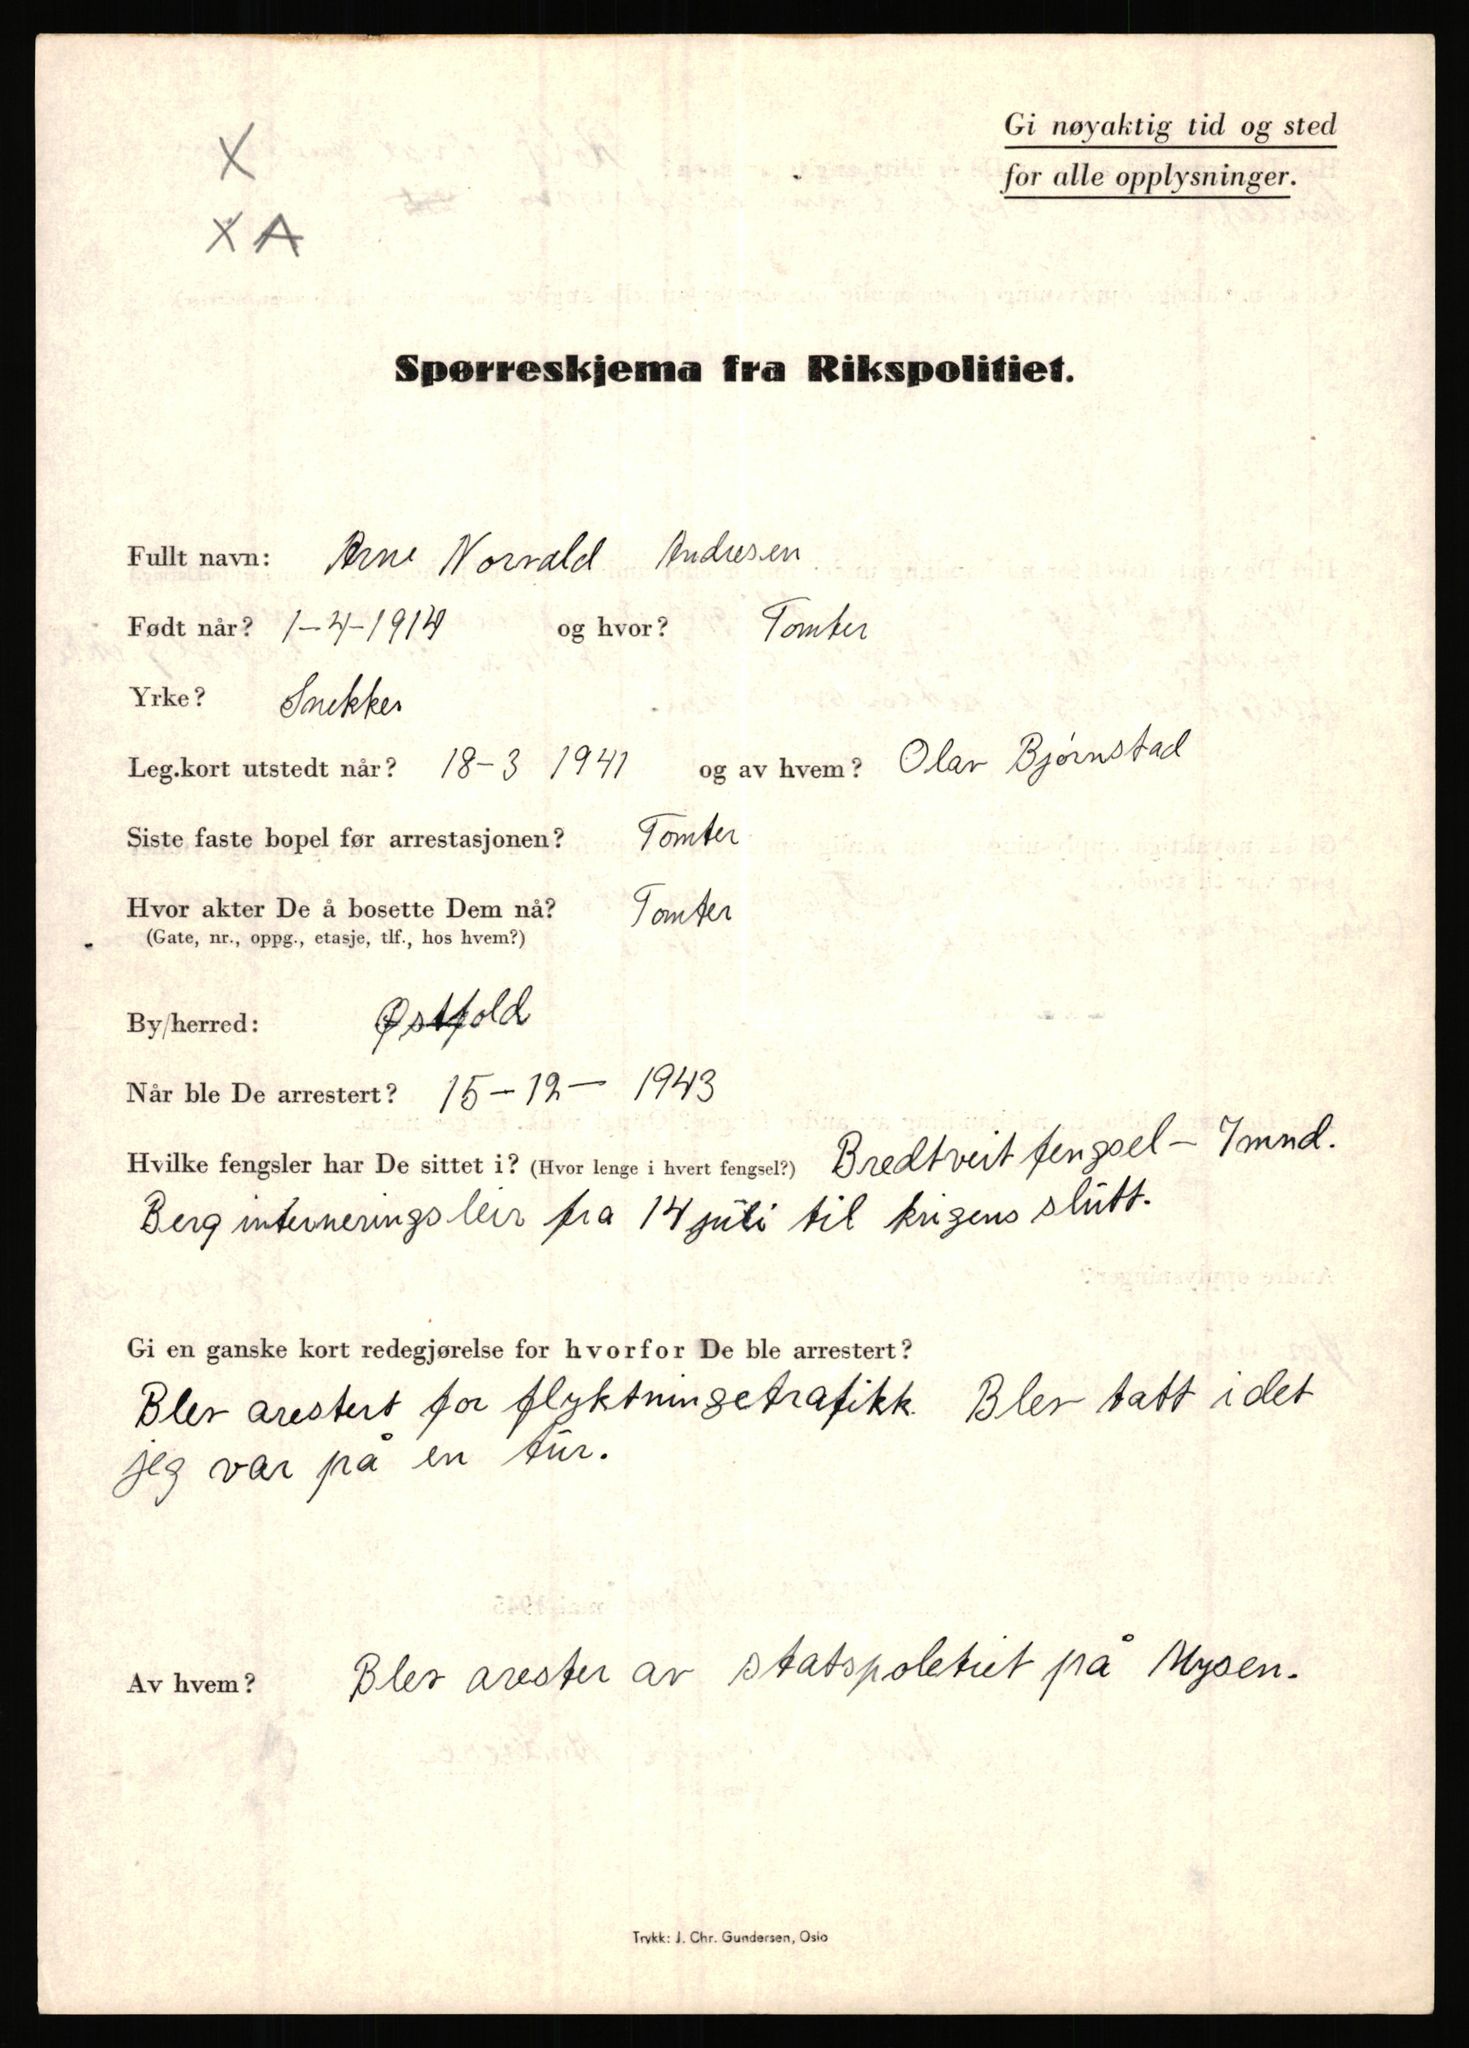 Gi nøyaktig tid og sted
for alle opplysninger.
X
X A
Spørreskjema fra Rikspolitiet.
Fullt navn: Arne Norvald Andresen
Født når? 1-4-1914 og hvor? Tomter
Yrke? Snekker
Leg.kort utstedt når? 18-3 1941 og av hvem? Olav Bjørnstad
Siste faste bopel før arrestasjonen? Tomter
Hvor akter De å bosette Dem nå? Tomter
(Gate, nr., oppg., etasje, tlf., hos hvem?)
By/herred: Østfold
Når ble De arrestert? 15-12- 1943
Hvilke fengsler har De sittet i? (Hvor lenge i hvert fengsel?) Bredtveit fengsel - 7 mnd.
Berg interneringsleir fra 14 juli til krigens slutt.
Gi en ganske kort redegjørelse for hvorfor De ble arrestert?
Blev arestert for flyktningetrafikk. Blev tatt i det
jeg var på en tur.
Av hvem? Blev arester av statspoletiet på Mysen.
Trykk: J. Chr. Gundersen, Oslo